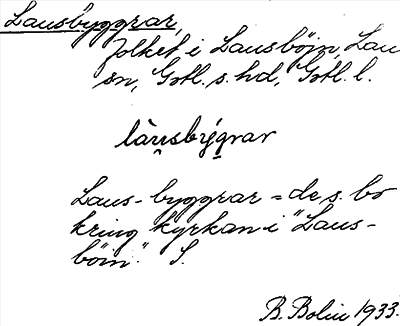 Lausbyggrar,
folket i Lausböin, Lau
sn, Gotl. s. hd, Gotl. l.
làu̯sbýg̯rar
Laus-byggrar = de s. bo
kring kyrkan i "Laus-
böin." S.
B. Bolin 1933.